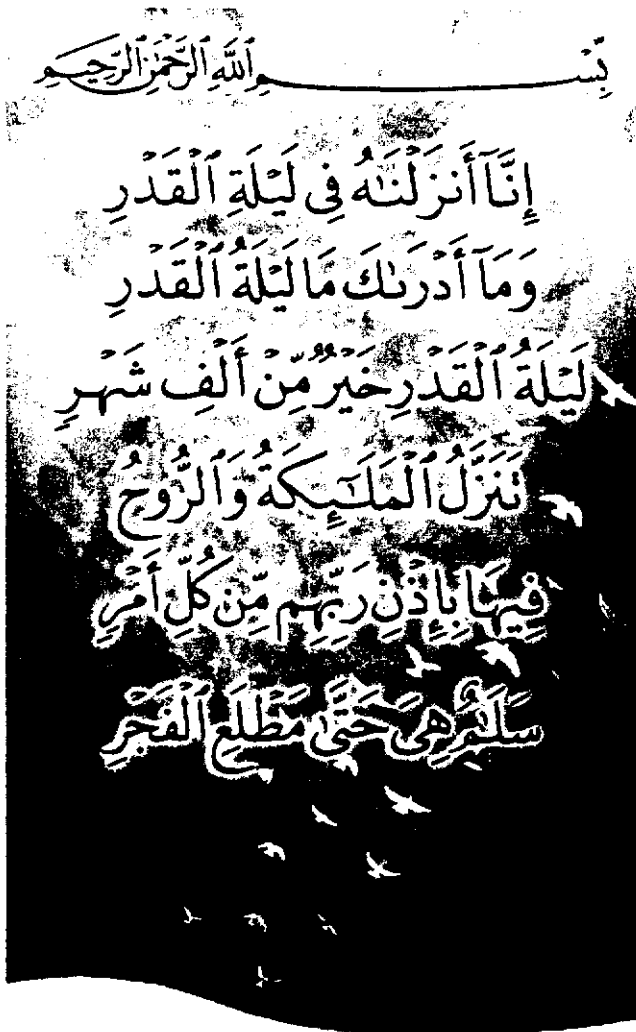 بِّسْمِ ٱللَّهِ ٱلرَّحْمَٰنِ ٱلرَّحِيمِ
إِنَّآ أَنزَلْنَٰهُ فِى لَيْلَةِ ٱلْقَدْرِ
وَمَآ أَدْرَىٰكَ مَا لَيْلَةُ ٱلْقَدْرِ
لَيْلَةُ ٱلْقَدْرِ خَيْرٌ مِّنْ أَلْفِ شَهْرٍ
تَنَزَّلُ ٱلْمَلَٰٓئِكَةُ وَٱلرُّوحُ
فِيهَا بِإِذْنِ رَبِّهِم مِّن كُلِّ أَمْرٍ
سَلَٰمٌ هِىَ حَتَّىٰ مَطْلَعِ ٱلْفَجْرِ